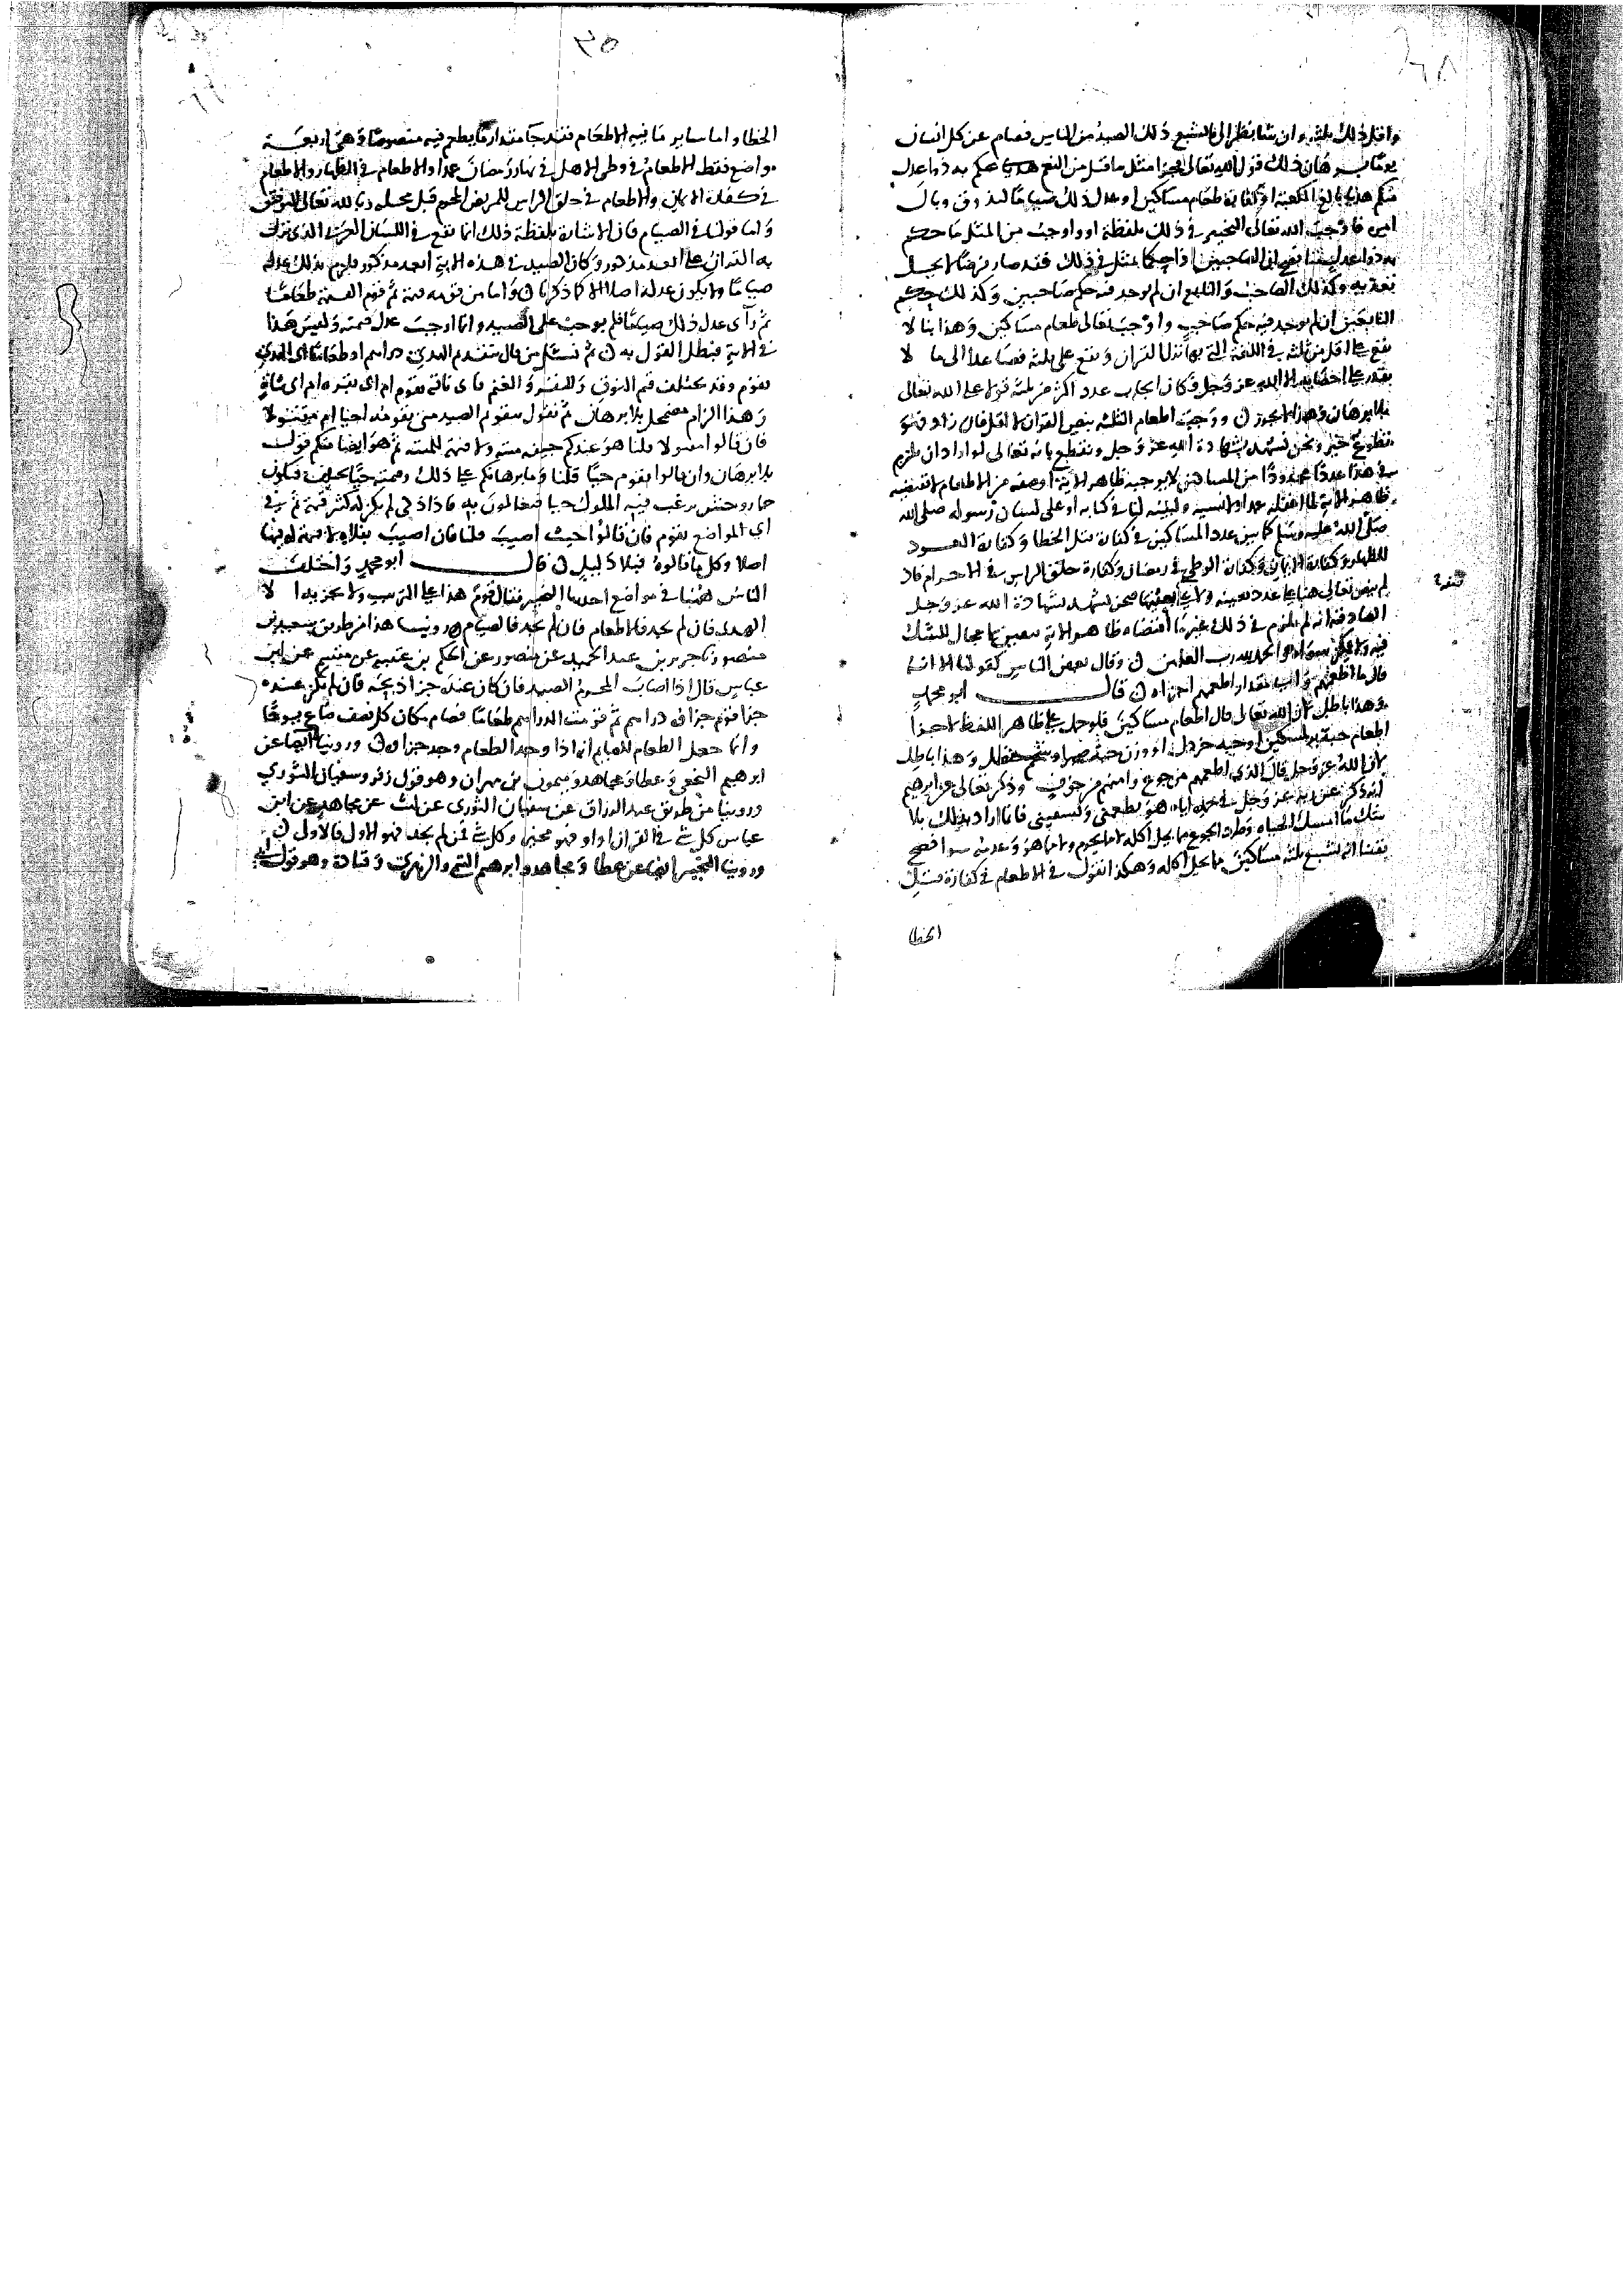 واقل ذلك ثلثه وان شا نظر الى ما يشبع ذلك الصيد من الناس فصام عن كل انسان
يوما برهان ذلك قول الله تعالى فجزا مثل ما قتل من النعم يحكم به ذوا عدل
منكم هديا بالغ الكعبة او كفارة طعام مساكين او عدل ذلك صياما ليذوق وبال
امره فاوجب الله تعالى التخيير في ذلك بلفظة او واوجب من المثل ما حكم
به ذوا عدل منا فوجدنا الصاحبين اذا حكما بمثل في ذلك فقد صار فرضا لا يحل
تعديه وكذلك الصاحب والتابع ان لم يوجد فيه حكم صاحبين وكذلك حكم
التابعين ان لم يوجد فيه حكم صاحب واوجب تعالى طعام مساكين وهذا بنا لا
يقع على اقل من ثلثه في اللغة التي بها نزل القران ويقع على ثلثه فصاعدا الى ما لا
يقدر على احصايه الا الله عز وجل فكان ايجاب عدد اكثر من ثلثه قولا على الله تعالى
بلا برهان وهذا لا يجوز ووجب اطعام الثلثه بنص القران لا اقل فان زاد فهو
تطوع خير ونحن نشهد بشهادة الله عز وجل ونقطع بانه تعالى لو اراد ان يلزم
في هذا عددا محدودا من المساكين لا يوجبه ظاهر الاية او صفه من الاطعام لا تقتضيه
ظاهر الاية لما اغفله عمدا ولا نسيه ولبينه لنا في كتابه او على لسان رسوله صلى الله
صلى الله عليه وسلم كما بين عدد المساكين في كفارة قتل الخطا وكفارة العود
للظهار وكفارة الايمان وكفارة الوطي في رمضان وكفارة حلق الراس في الاحرام فاذ
لم ينص تعالى هنا على عدد بعينه ولا على صفة بعينها فنحن نشهد بشهادة الله عز وجل
الصادقة انه لم يلزم في ذلك غير ما اقتضاه ظاهر الاية بيقين لا مجال للشك
فيه ولا يمكن سواه والحمد لله رب العلمين وقال بعض الناس كقولنا الا انه
قال ما اطعمهم واي مقدار اطعمهم اجزاه قال ابو محمد
وهذا باطل لان الله تعالى قال اطعام مساكين فلو حمل على ظاهر اللفظ لاجزا
اطعام حبة بر لمسكين او حبة خردل وهذا باطل
لان الله عز وجل قال الذي اطعمهم من جوع وامنهم من خوف وذكر تعالى عن ابرهيم
انه ذكر عن ربه عز وجل هو يطعمني ويسقيني فانما اراد بذلك بلا
شك ما امسك الحياه وطرد الجوع مما يحل اكله لا بما يحرم
يقتضي ان تشبع ثلثه مساكين مما يحل اكله وهكذا نقول في الاطعام في كفارة قتل
الخطا
الخطا واما ساير ما فيه الاطعام فقد جا مقدار ما يطعم فيه منصوصا وهي اربعة
مواضع فقط الاطعام في وطي الاهل في نهار رمضان عمدا والاطعام في الظهار والاطعام
في كفارة الايمان والاطعام في حلق الراس للمريض المحرم قبل محله وبالله تعالى التوفيق
واما قولنا في الصيام فان الاشارة بلفظة ذلك انما تقع في اللسان العربي الذي نزل
به القران على ابعد مذكور وكان الصيد في هذه الاية ابعد مذكور فلزم بذلك عدله
صياما ولا يكون عدله اصلا الا كما ذكرنا واما من قومه قيمة ثم قوم القيمة طعاما
ثم راى عدل ذلك صياما فلم يوجب على الصيد وانما اوجب عدل قيمته وليس هذا
في الاية فبطل القول به ثم نسئل من قال بتقديم الهدي دراهم او طعاما اي الهدي
يقوم وقد يختلف قيم النوق والبقر والغنم فاي ناقه يقوم ام اي بقره ام اي شاة
وهذا الزام مضمحل بلا برهان ثم نقول لمقوم الصيد متى يقومه احيا ام مقتولا
فان قالوا مقتولا قلنا هو عندكم جيفه ميته ولا قيمة للميته ثم هو ايضا منكم قول
بلا برهان وان قالوا يقوم حيا قلنا وما برهانكم على ذلك وقيمته حيا تختلف فيكون
حمار وحش يرغب فيه الملوك حيا فيغالون به فاذا ذكي لم يكن له كثير قيمة ثم في
اي المواضع يقوم فان قالوا حيث اصيب قلنا فان اصيب بفلاه لا قيمة له فيها
اصلا وكل ما قالوه فبلا دليل قال ابو محمد واختلف
الناس ههنا في مواضع احدها التخيير فقال قوم هذا على الترتيب ولا يجزيه الا
الهدي فان لم يجد فالاطعام فان لم يجد فالصيام روينا هذا من طريق سعيد بن
منصور نا جرير بن عبد الحميد عن منصور عن الحكم بن عتيبه عن مقسم عن ابن
عباس قال اذا اصاب المحرم الصيد فان كان عنده جزا ذبحه فان لم يكن عنده
جزا قوم جزاه دراهم ثم قومت الدراهم طعاما فصام مكان كل نصف صاع يوما
وانما جعل الطعام للصيام انه اذا وجد الطعام وجد جزاه وروينا ايضا عن
ابرهيم النخعي وعطا ومجاهد وميمون بن مهران وهو قول زفر وسفيان الثوري
وروينا من طريق عبد الرزاق عن سفيان الثوري عن ليث عن مجاهد عن ابن
عباس كل شي في القران او او فهو مخير وكل شي فمن لم يجد فهو الاول فالاول
وروينا التخيير ايضا عن عطا ومجاهد وابرهيم التيمي والزهري وقتادة وهو قول